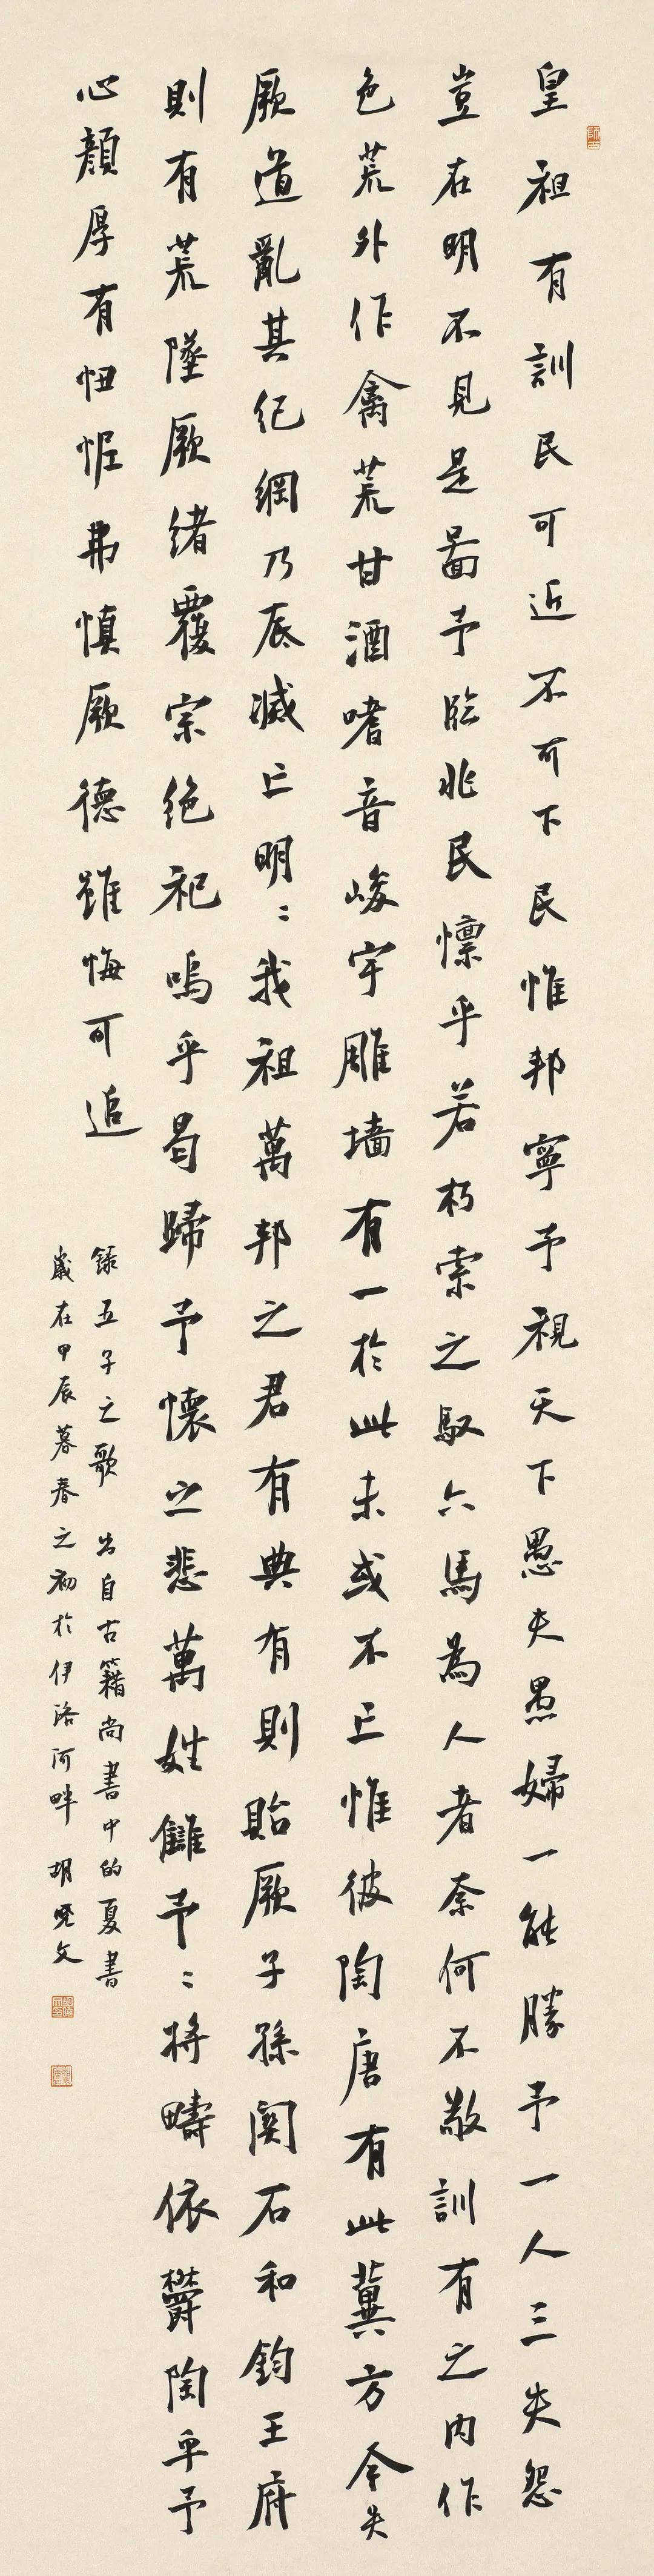 皇祖有訓民可近不可下民惟邦寧予視天下愚夫愚婦一能勝予一人三失怨
豈在明不見是圖予臨兆民懍乎若朽索之馭六馬為人者奈何不敬訓有之內作
色荒外作禽荒甘酒嗜音峻宇雕墙有一於此未或不亡惟彼陶唐有此冀方今失
厥道亂其纪綱乃底滅亡明〻我祖萬邦之君有典有則貽厥子孫関石和鈞王府
則有荒墜厥緒覆宗绝祀嗚乎曷歸予懷之悲萬姓讎予〻將疇依欝陶乎予
心顏厚有忸怩弗慎厥德雖悔可追
錄五子之歌 出自古籍尚書中的夏書
歲在甲辰暮春之初於伊洛河畔 胡晓文